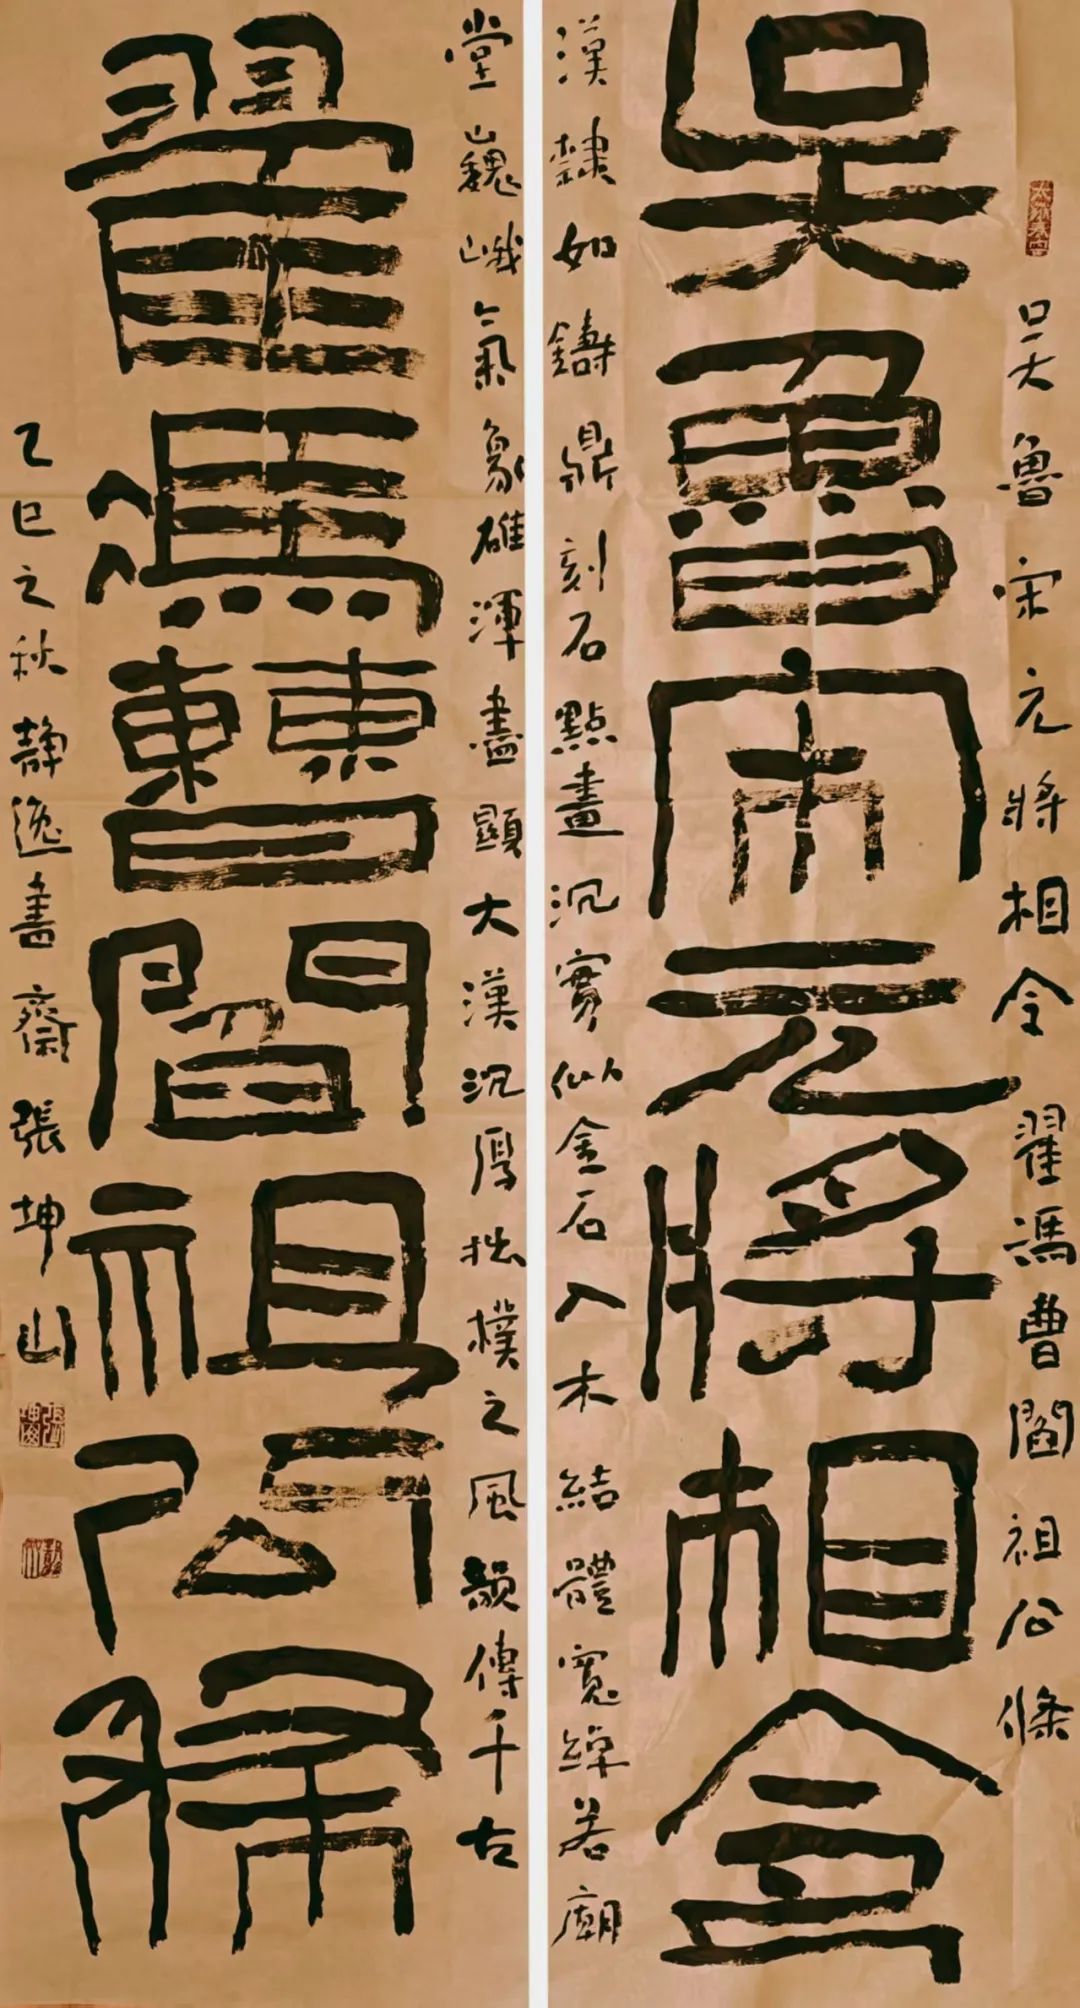 吴魯宋元將相令
翟馮曹閻祖公條
吴魯宋元將相令 翟馮曹閻祖公條
漢隸如鑄鼎刻石點畫沉實似金石入木結體寬綽若廟
堂巍峨氣象雄渾盡顯大漢沉厚拙樸之風韻傳千古
乙巳之秋静逸書齋張坤山